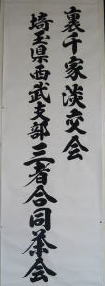 裏千家淡交会
埼玉県西武支部三者合同茶会